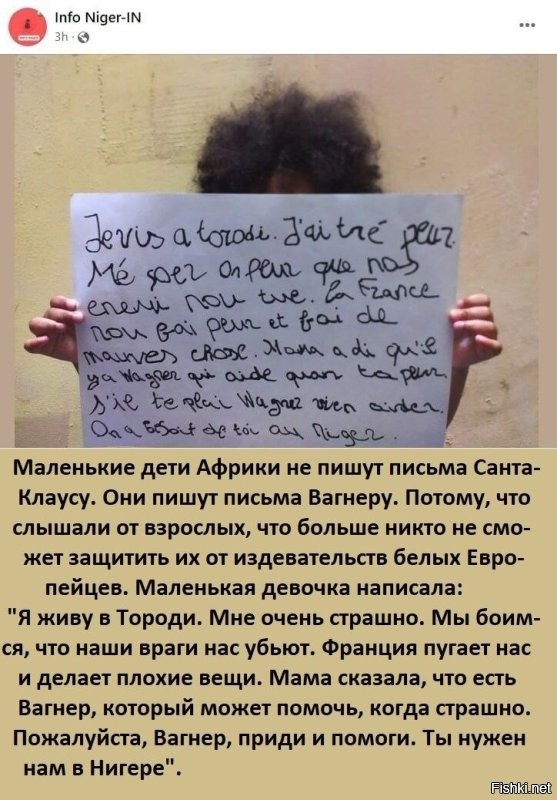 Info Niger-IN
3h ·
Je vis a torodi. J'ai tré peur.
Mé per on peur que nos
enemi nou tue. la France
nou fai peur et fai de
mauves chose. Mama a di qu'il
ya Wagner qui aide quan ta peur.
S'il te plai Wagner vien aider.
On a besoit de toi au Niger.
Маленькие дети Африки не пишут письма Санта-
Клаусу. Они пишут письма Вагнеру. Потому, что
слышали от взрослых, что больше никто не смо-
жет защитить их от издевательств белых Евро-
пейцев. Маленькая девочка написала:
"Я живу в Тороди. Мне очень страшно. Мы боим-
ся, что наши враги нас убьют. Франция пугает нас
и делает плохие вещи. Мама сказала, что есть
Вагнер, который может помочь, когда страшно.
Пожалуйста, Вагнер, приди и помоги. Ты нужен
нам в Нигере".
Fishki.net